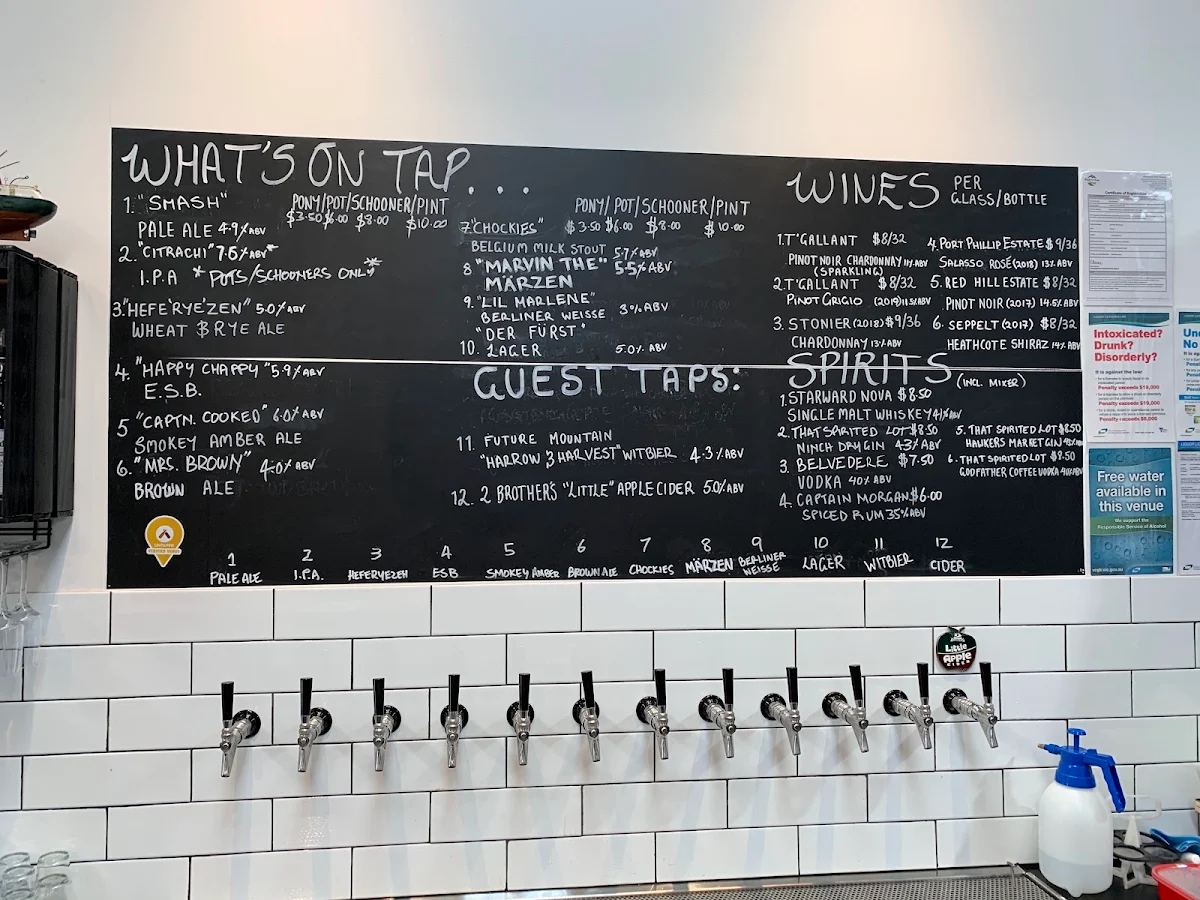 WHAT'S ON TAP...
PONY/POT/SCHOONER/PINT
$3.50 $6.00 $8.00 $10.00
1. "SMASH"
PALE ALE 4.9% ABV
2. "CITRACHI" 7.5% ABV*
I.P.A *POTS/SCHOONERS ONLY*
3. "HEFE'RYE'ZEN" 5.0% ABV
WHEAT & RYE ALE
4. "HAPPY CHAPPY" 5.9% ABV
E.S.B.
5 "CAPTN. COOKED" 6.0% ABV
SMOKEY AMBER ALE
6. "MRS. BROWN" 4.0% ABV
BROWN ALE
PONY/POT/SCHOONER/PINT
7. "CHOCKIES" $3.50 $6.00 $8.00 $10.00
BELGIUM MILK STOUT 5.7% ABV
8 "MARVIN THE" 5.5% ABV
MÄRZEN
9. "LIL MARLENE"
BERLINER WEISSE 3% ABV
"DER FÜRST"
10. LAGER 5.0% ABV
GUEST TAPS:
11. FUTURE MOUNTAIN
"HARROW & HARVEST" WITBIER 4.3% ABV
12. 2 BROTHER'S "LITTLE" APPLE CIDER 5.0% ABV
WINES PER
GLASS/BOTTLE
1. T'GALLANT $8/32
PINOT NOIR CHARDONNAY 11% ABV
(SPARKLING)
2. T'GALLANT $8/32
PINOT GRIGIO (2019) ABV
3. STONIER (2018) $9/36
CHARDONNAY 13% ABV
4. PORT PHILLIP ESTATE $9/36
SALASSO ROSÉ (2018) 13% ABV
5. RED HILL ESTATE $8/32
PINOT NOIR (2017) 14.5% ABV
6. SEPPELT (2017) $8/32
HEATHCOTE SHIRAZ 14% ABV
SPIRITS (INCL. MIXER)
1. STARWARD NOVA $8.50
SINGLE MALT WHISKEY 41% ABV
2. THAT SPIRITED LOT $8.50
NINCH DRY GIN 43% ABV
3. BELVEDERE $7.50
VODKA 40% ABV
4. CAPTAIN MORGAN $6.00
SPICED RUM 35% ABV
5. THAT SPIRITED LOT $8.50
HAUKERS MARKET GIN
6. THAT SPIRITED LOT $8.50
GODFATHER COFFEE VODKA 40% ABV
1 2 3 4 5 6 7 8 9 10 11 12
PALE ALE I.P.A. HEFERYEZEN ESB SMOKEY AMBER BROWN ALE CHOCKIES MÄRZEN BERLINER WEISSE LAGER WITBIER CIDER
Certificate of Registration
Intoxicated?
Drunk?
Disorderly?
It is against the law:
Penalty exceeds $19,000
Penalty exceeds $19,000
Free water
available in
this venue
We support the
Responsible Service of Alcohol
Little
Apple
CIDER